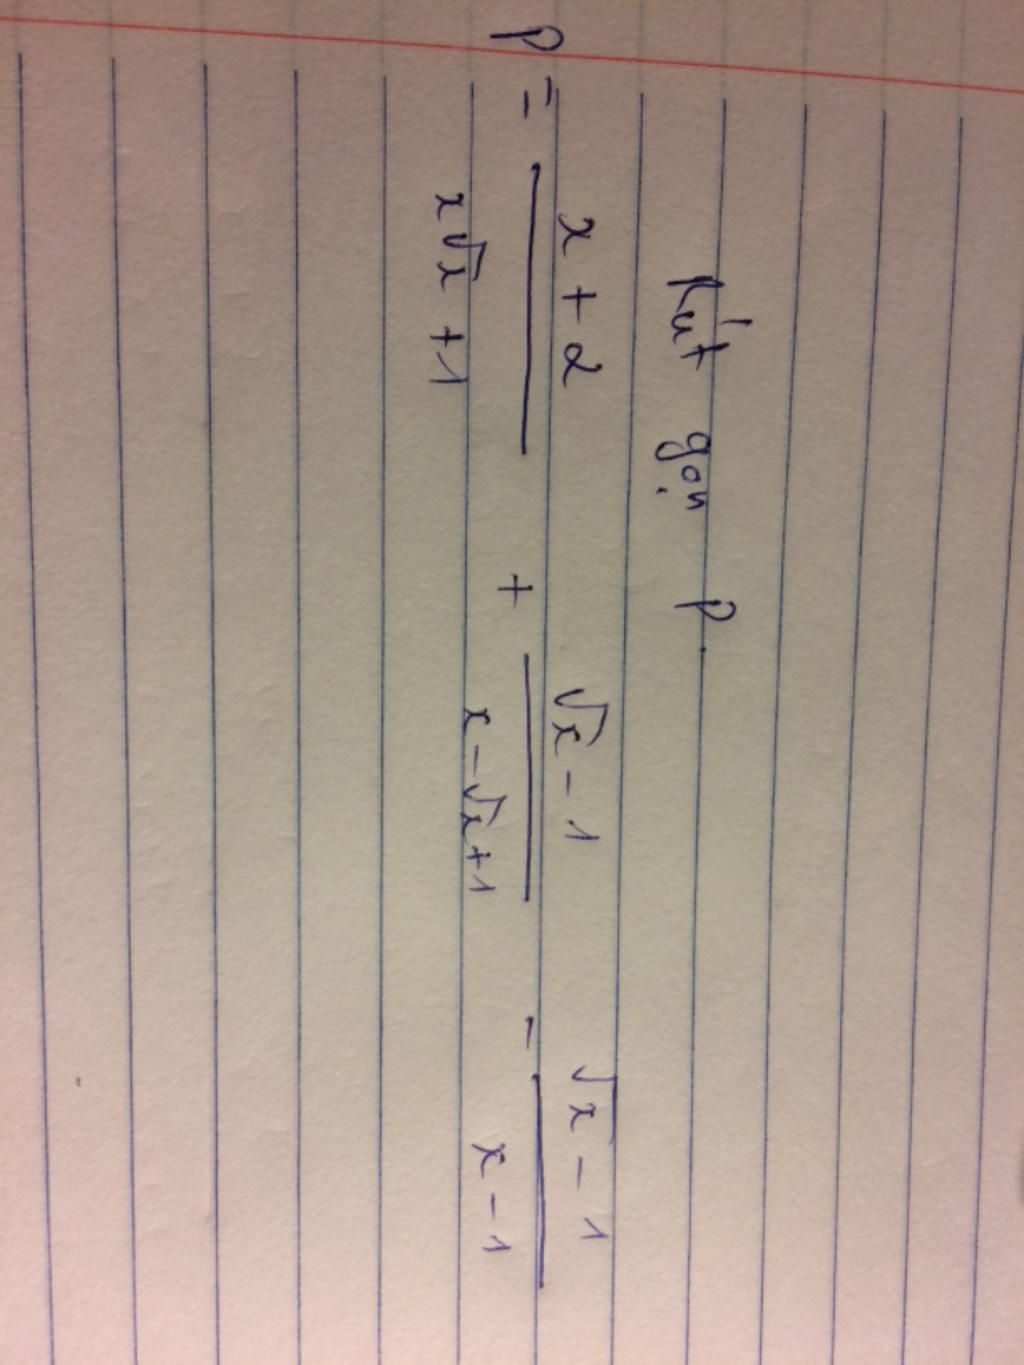 Rút gọn P.
P = \frac{x+2}{x\sqrt{x}+1} + \frac{\sqrt{x}-1}{x-\sqrt{x}+1} - \frac{\sqrt{x}-1}{x-1}